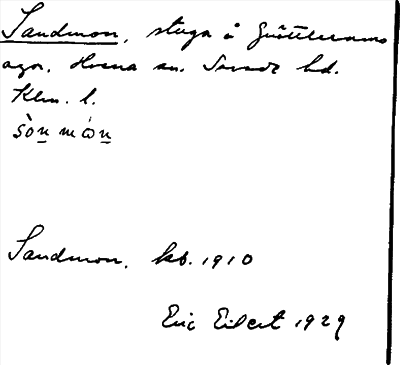 Sandmon, stuga å Guöttlerums
ägor, Hvena sn. Sevede hd.
Klm. l.
sònmòn
Sandmon, kb. 1910
Eric Eilert 1929